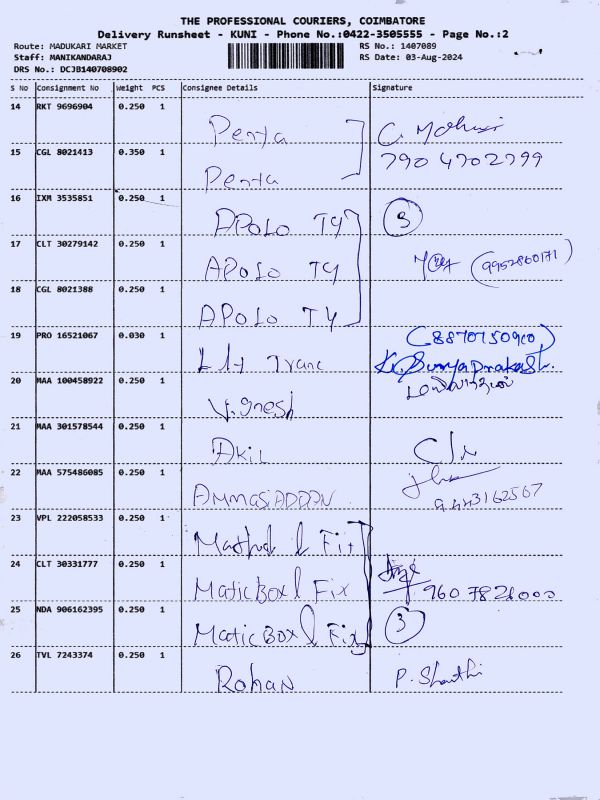 THE PROFESSIONAL COURIERS, COIMBATORE
Delivery Runsheet - KUNI - Phone No.:0422-3505555 - Page No.:2
Route: MADUKARI MARKET
RS No.: 1407089
Staff: MANIKANDARAJ
RS Date: 03-Aug-2024
DRS No.: DCJB140708902
S No Consignment No Weight PCS Consignee Details Signature
14 RKT 9696904 0.250 1 Penta C.
15 CGL 8021413 0.350 1 Penta 790 4702799
16 IXM 3535851 0.250 1 APOLO TY 3
17 CLT 30279142 0.250 1 APOLO TY (9952860171)
18 CGL 8021388 0.250 1 APOLO TY
19 PRO 16521067 0.030 1 (8870750910)
K. Suryaprakash.
20 MAA 100458922 0.250 1 Vignesh
21 MAA 301578544 0.250 1 Akil
22 MAA 575486085 0.250 1 9443162567
23 VPL 222058533 0.250 1
24 CLT 30331777 0.250 1 Matic Box l Fix 960 7821000
25 NDA 906162395 0.250 1 Matic Box l Fix 3
26 TVL 7243374 0.250 1 Rohan P. Shanthi